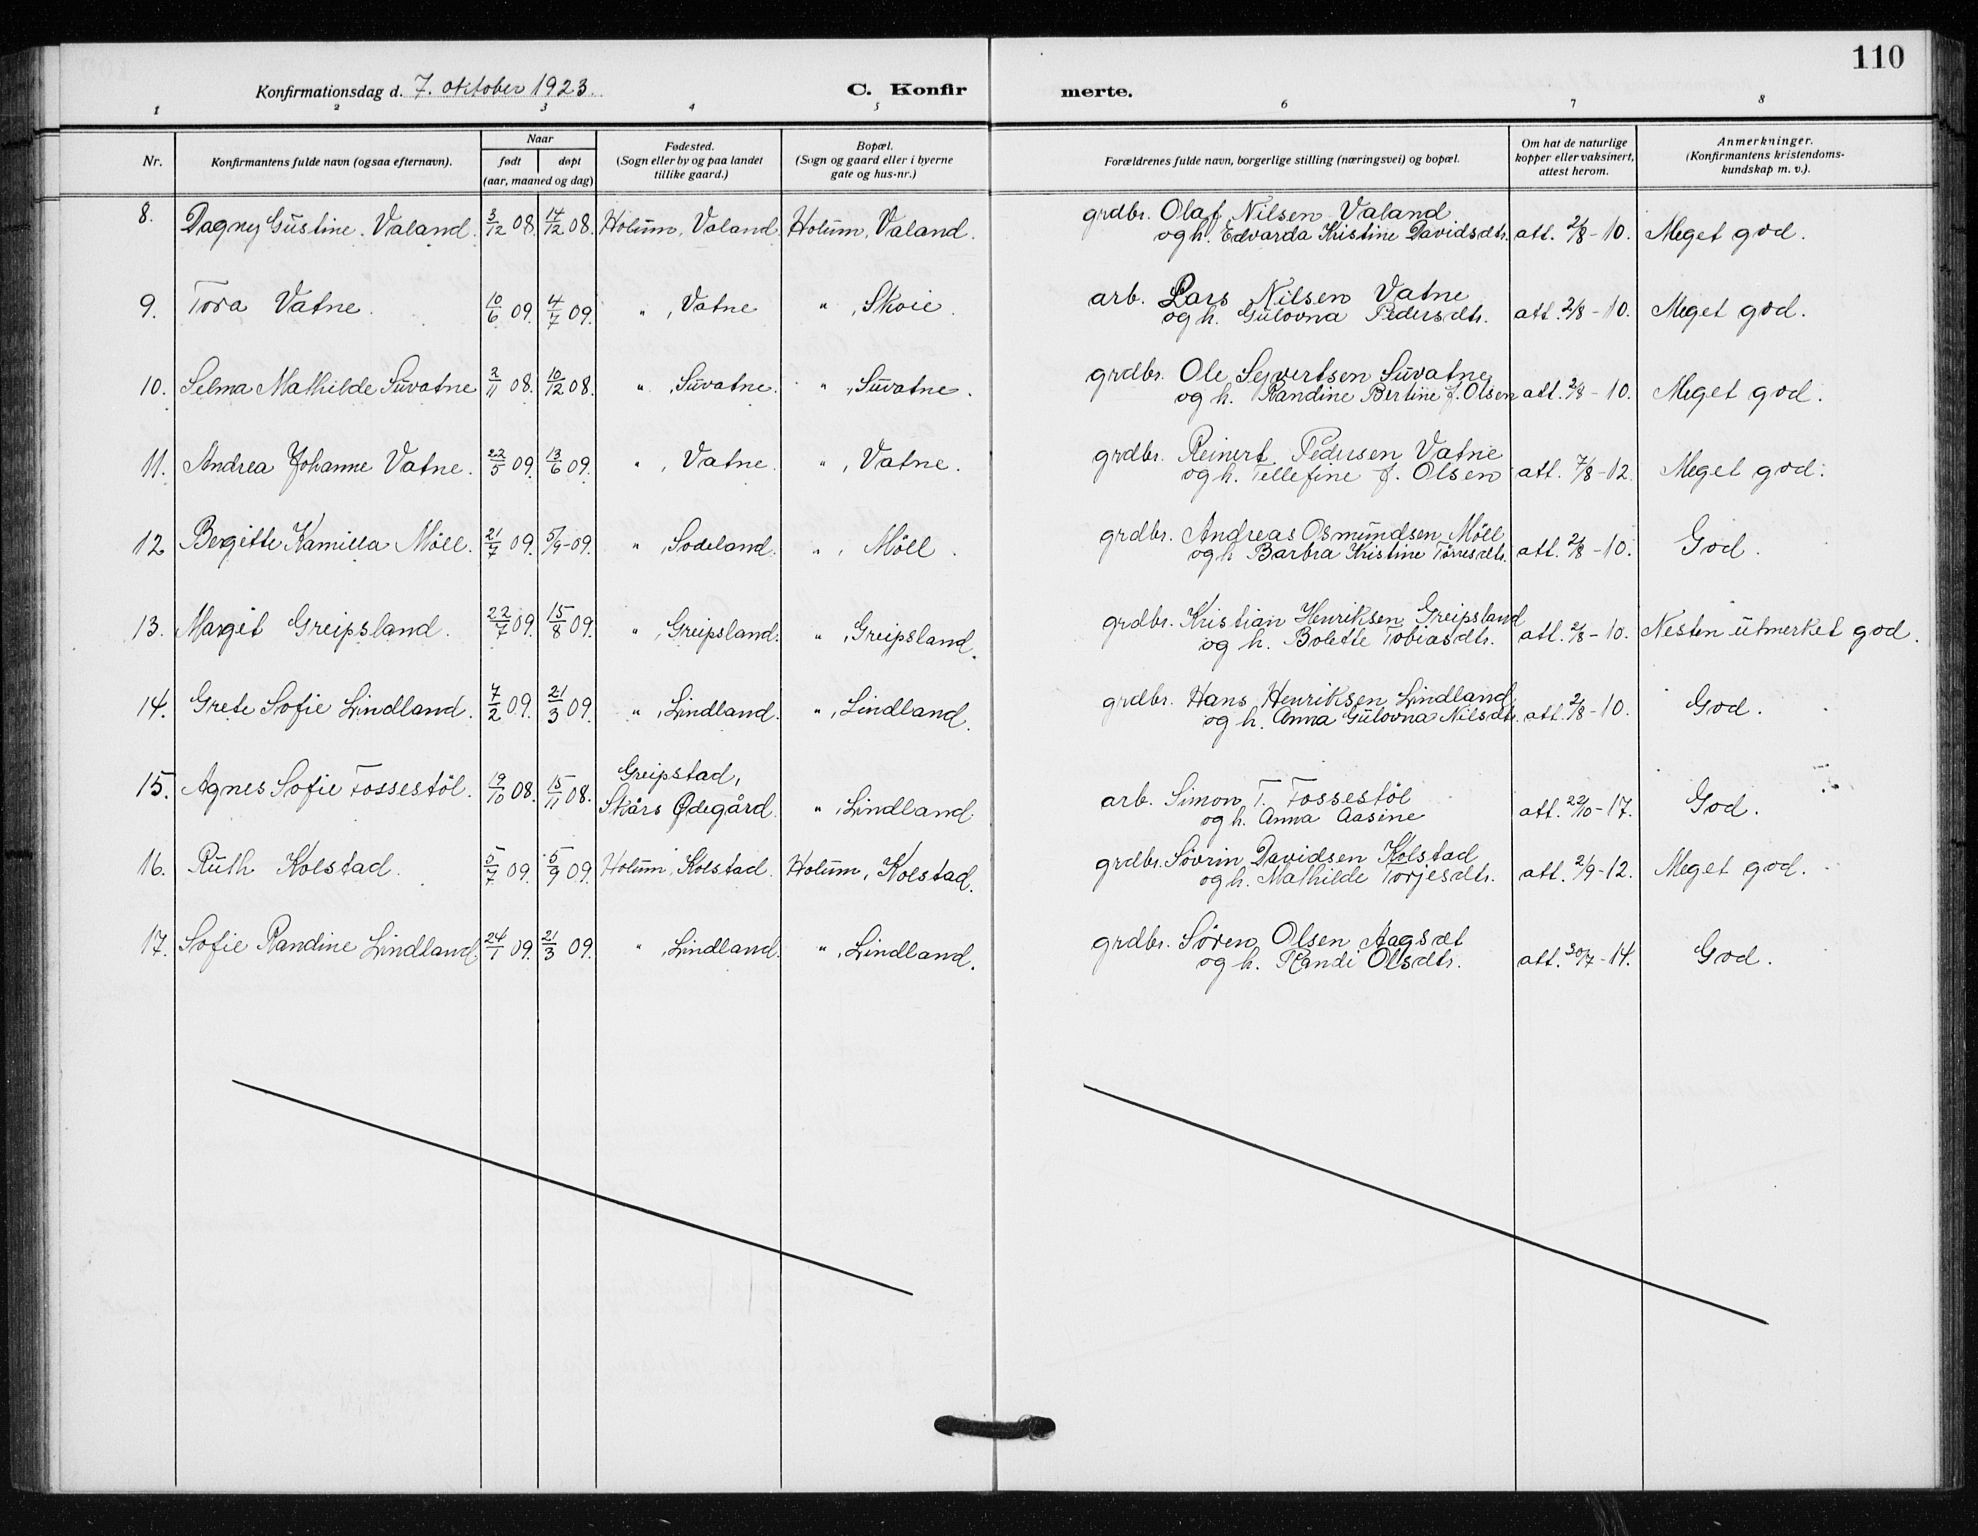 110
Konfirmationsdag d. 7. oktober 1923.
C. Konfir merte.
1 2 3 4 5 6 7 8
Nr.
Konfirmantens fulde navn (ogsaa efternavn).
Naar
født døpt
(aar, maaned og dag)
Fødested.
(Sogn eller by og paa landet
tillike gaard.)
Bopæl.
(Sogn og gaard eller i byerne
gate og hus-nr.)
Forældrenes fulde navn, borgerlige stilling (næringsvei) og bopæl.
Om hat de naturlige
kopper eller vaksinert,
attest herom.
Anmerkninger.
(Konfirmantens kristendoms-
kundskap m. v.).
8. Dagny Gustine Valand. 3/12 08. 14/12 08. Holum, Valand Holum, Valand. grdbr. Olaf Nilsen Valand
og h. Edvarda Kristine Davidsdtr. att. 2/8-10. Meget god.
9. Tora Vatne. 10/6 09. 4/7 09. " , Vatne " , Skoie. arb. Lars Nilsen Vatne
og h. Gulovna Pedersdtr. att. 2/8-10. Meget god.
10. Selma Mathilde Suvatne 2/11 08. 10/12 08. " , Suvatne. " , Suvatne. grdbr. Ole Syvertsen Suvatne
og h. Randine Bertine f. Olsen att. 2/8-10. Meget god.
11. Andrea Johanne Vatne. 22/5 09. 13/6 09. " , Vatne. " , Vatne. grdbr. Reinert Pedersen Vatne
og h. Tellefine f. Olsen att. 7/8-12. Meget god.
12 Bergitte Kamilla Möll. 21/7 09. 5/9-09. " , Sodeland. " , Möll. grdbr. Andreas Osmundsen Möll
og h. Barbra Kristine Törresdtr. att. 2/8-10. God.
13. Margit Greipsland. 22/7 09. 15/8 09. " , Greipsland. " , Greipsland. grdbr. Kristian Henriksen Greipsland
og h. Bolette Tobiasdtr. att. 2/8-10. Nesten utmerket god.
14. Grete Sofie Lindland. 7/2 09. 21/3 09. " , Lindland. " , Lindland. grdbr. Hans Henriksen Lindland
og h. Anna Gulovna Nilsdtr. att. 2/8-10. God.
15. Agnes Sofie Fossestöl. 19/10 08. 15/11 08. Greipstad,
Skårs Ødegård. " , Lindland. arb. Simon T. Fossestöl
og h. Anna Aasine att. 22/10-17. God.
16. Ruth Kolstad. 5/7 09. 5/9 09. Holum, Kolstad. Holum, Kolstad. grdbr. Sövrin Davidsen Kolstad
og h. Mathilde Torjesdtr. att. 2/9-12. Meget god.
17. Sofie Randine Lindland. 24/1 09. 21/3 09. " , Lindland. " , Lindland. grdbr. Sören Olsen
og h. Randi Olsdtr. att. 30/7-14. God.